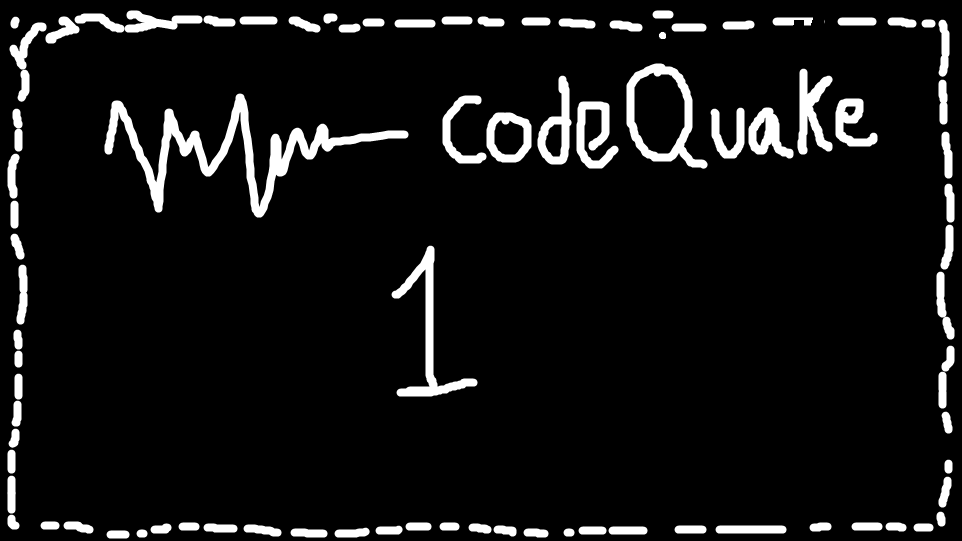 codeQuake
1